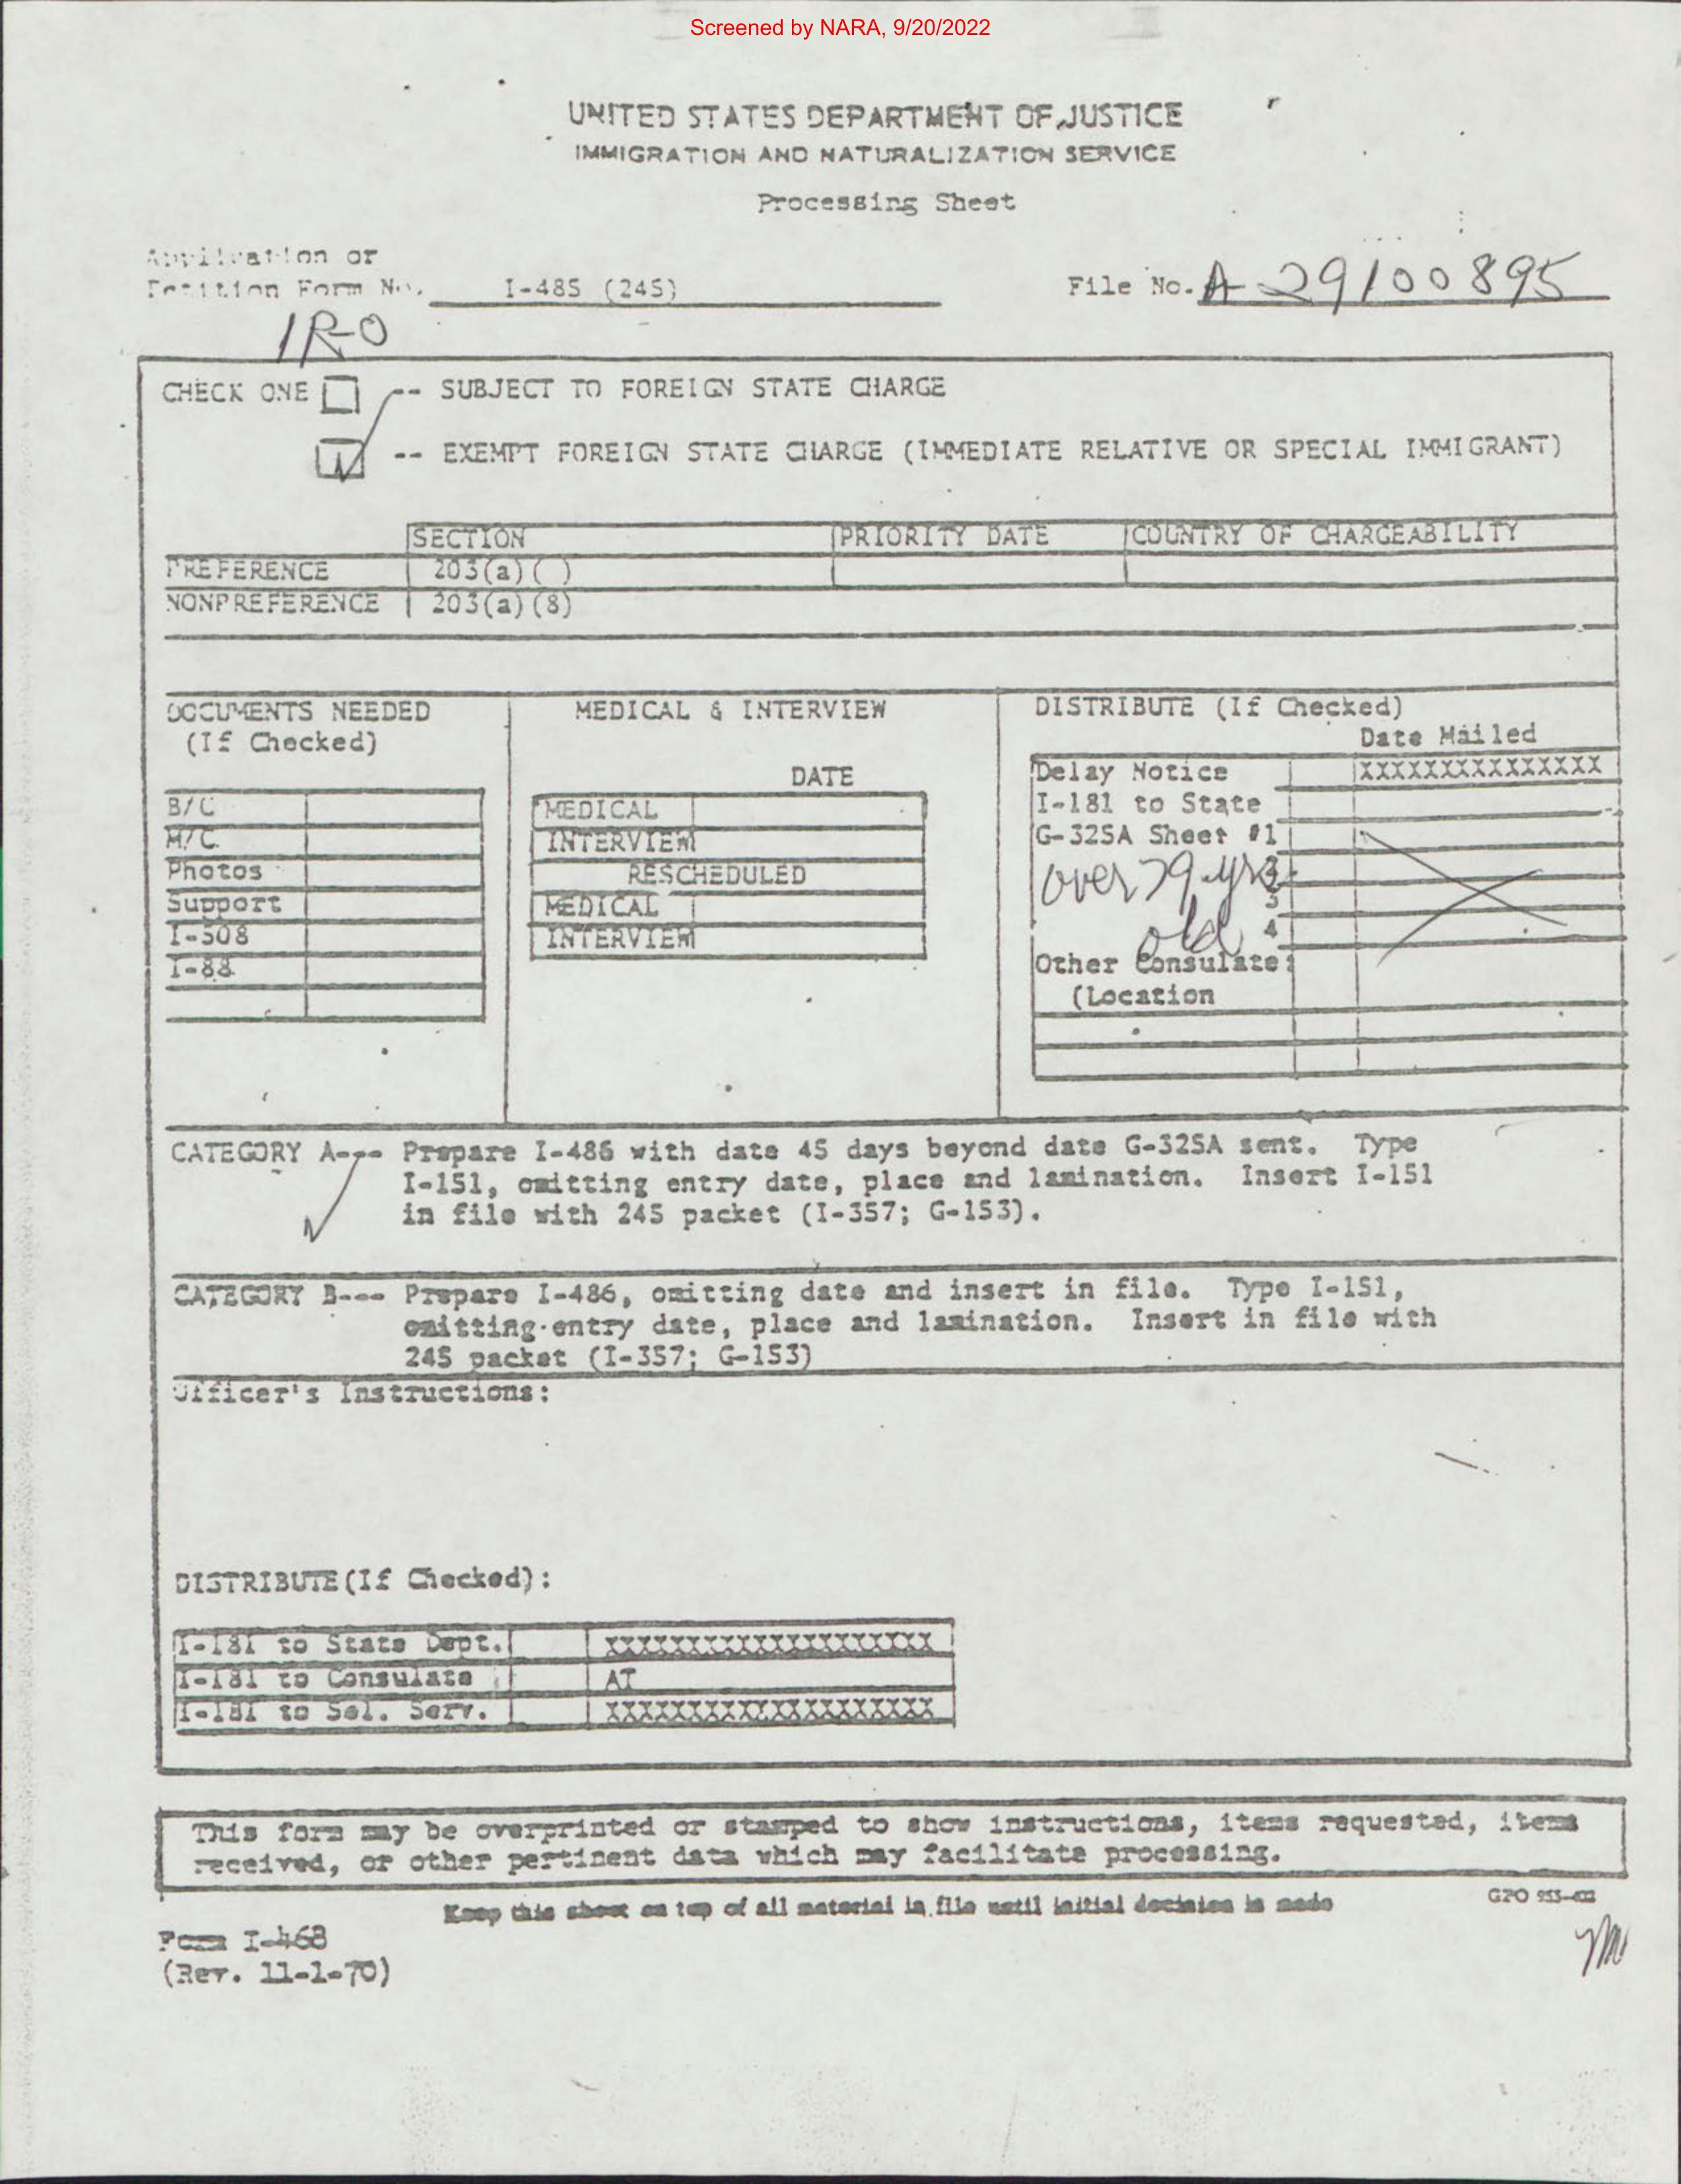 Screened by NARA, 9/20/2022
UNITED STATES DEPARTMENT OF JUSTICE
IMMIGRATION AND NATURALIZATION SERVICE
Processing Sheet
Application or
Petition Form No. I-485 (245)
File No. A-29100895
IR-0
CHECK ONE -- SUBJECT TO FOREIGN STATE CHARGE
-- EXEMPT FOREIGN STATE CHARGE (IMMEDIATE RELATIVE OR SPECIAL IMMIGRANT)
SECTION PRIORITY DATE COUNTRY OF CHARGEABILITY
PREFERENCE 203(a)( )
NONPREFERENCE 203(a)(8)
DOCUMENTS NEEDED
(If Checked)
B/C
M/C
Photos
Support
I-508
I-88
MEDICAL & INTERVIEW
DATE
MEDICAL
INTERVIEW
RESCHEDULED
MEDICAL
INTERVIEW
DISTRIBUTE (If Checked)
Date Mailed
Delay Notice XXXXXXXXXXXXXXX
I-181 to State
G-325A Sheet #1
2
3
4
over 79 yrs
old
Other Consulate:
(Location
CATEGORY A--- Prepare I-486 with date 45 days beyond date G-325A sent. Type
I-151, omitting entry date, place and lamination. Insert I-151
in file with 245 packet (I-357; G-153).
CATEGORY B--- Prepare I-486, omitting date and insert in file. Type I-151,
omitting entry date, place and lamination. Insert in file with
245 packet (I-357; G-153)
Officer's Instructions:
DISTRIBUTE(If Checked):
I-181 to State Dept. XXXXXXXXXXXXXXXXXXXX
I-181 to Consulate AT
I-181 to Sel. Serv. XXXXXXXXXXXXXXXXXXXX
This form may be overprinted or stamped to show instructions, items requested, items
received, or other pertinent data which may facilitate processing.
Keep this sheet on top of all material in file until initial decision is made
GPO
Form I-468
(Rev. 11-1-70)